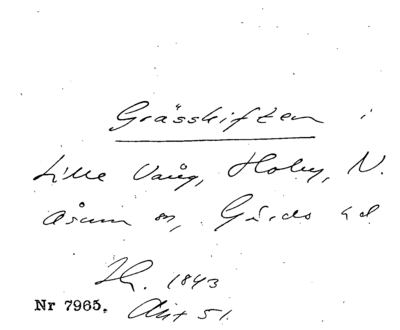 Grässkiften i
Lille Vång, Holey, N.
Åsum sn, Gärds hd
Lh. 1843
Nr 7965. Akt 51.